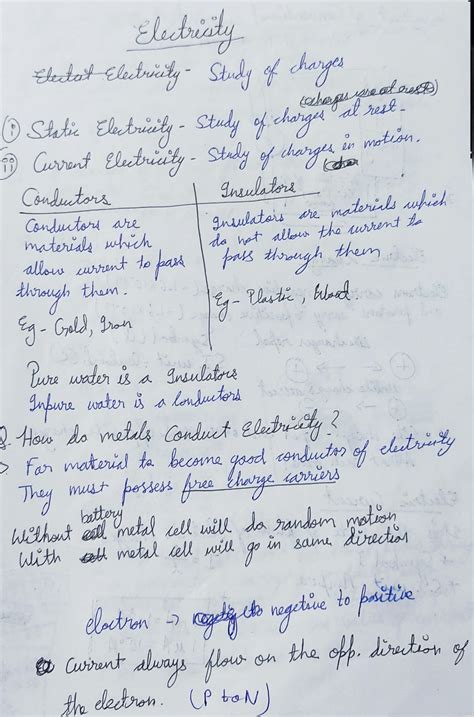 Electricity
Electat Electricity - Study of charges
(charges are at rest)
(i) Static Electricity - Study of charges at rest -
(ii) Current Electricity - Study of charges in motion.
Conductors
Conductors are
materials which
allow current to pass
through them.
Eg - Gold, Iron
Insulators
Insulators are materials which
do not allow the current to
pass through them
Eg - Plastic, Wood.
Pure water is a Insulators
Inpure water is a Conductors
Q. How do metals Conduct Electricity?
For material to become good conductor of electricity
They must possess free charge carriers
battery
Without cell metal cell will do random motion
With cell metal cell will go in same direction
electron → negetive to positive
Current always flow on the opp. direction of
the electron. (P to N)